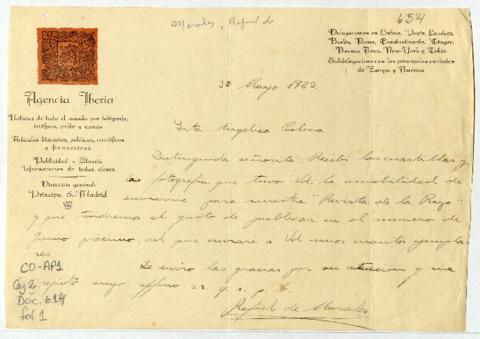 Morales, Rafael de
654
Delegaciones en Lisboa, París, Londres,
Berlín, Roma, Constantinopla, Tánger,
Buenos Aires, New-York y Tokio
Subdelegaciones en las principales ciudades
de Europa y América
Agencia Iberia
Noticias de todo el mundo por telégrafo,
teléfono, cable y correo
Artículos literarios, políticos, científicos
y financieros
Publicidad - Clisés
Informaciones de todas clases
Dirección general:
Príncipe, Madrid
30 Mayo 1923.
Srta Angélica Palma
Distinguida señorita: Recibí las cuartillas y
la fotografía que tuvo Vd. la amabilidad de
enviarme para nuestra "Revista de la Raza"
y que tendremos el gusto de publicar en el número de
Junio próximo, del que enviaré a Vd unos cuantos ejempla-
res
Le envío las gracias por su atención y me
repito suyo affmo s. s. q. s. p. b.
Rafael de Morales
CO-AP1
Caj 2
Doc. 614
Fol. 1